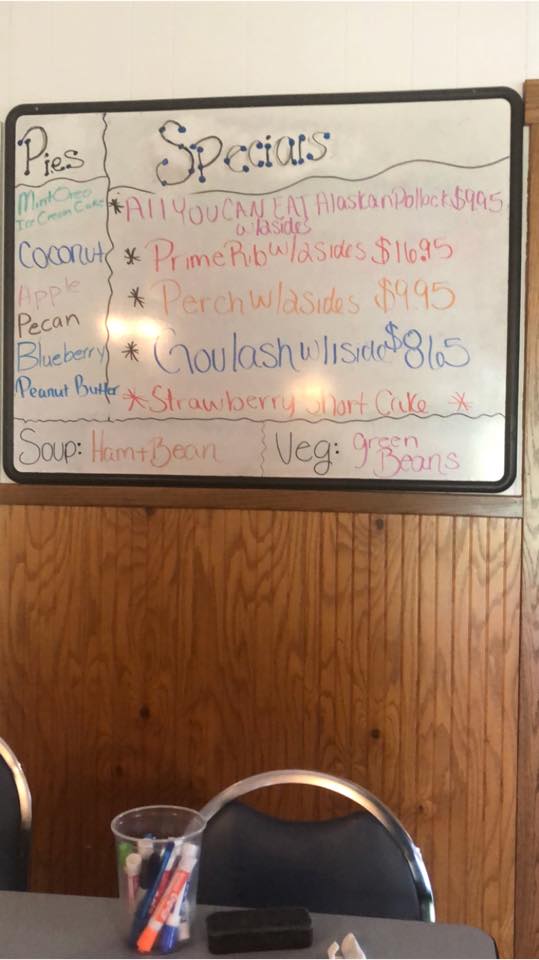 Pies
Mint Oreo
Ice Cream Cake
Coconut
Apple
Pecan
Blueberry
Peanut Butter
Specials
*All YOU CAN EAT Alaskan Pollock $9.95
w/2asides
* Prime Rib w/2sides $16.95
* Perch w/2sides $9.95
* Goulash w/1side $8.65
*Strawberry Short Cake *
Soup: Ham+Bean
Veg: green
Beans